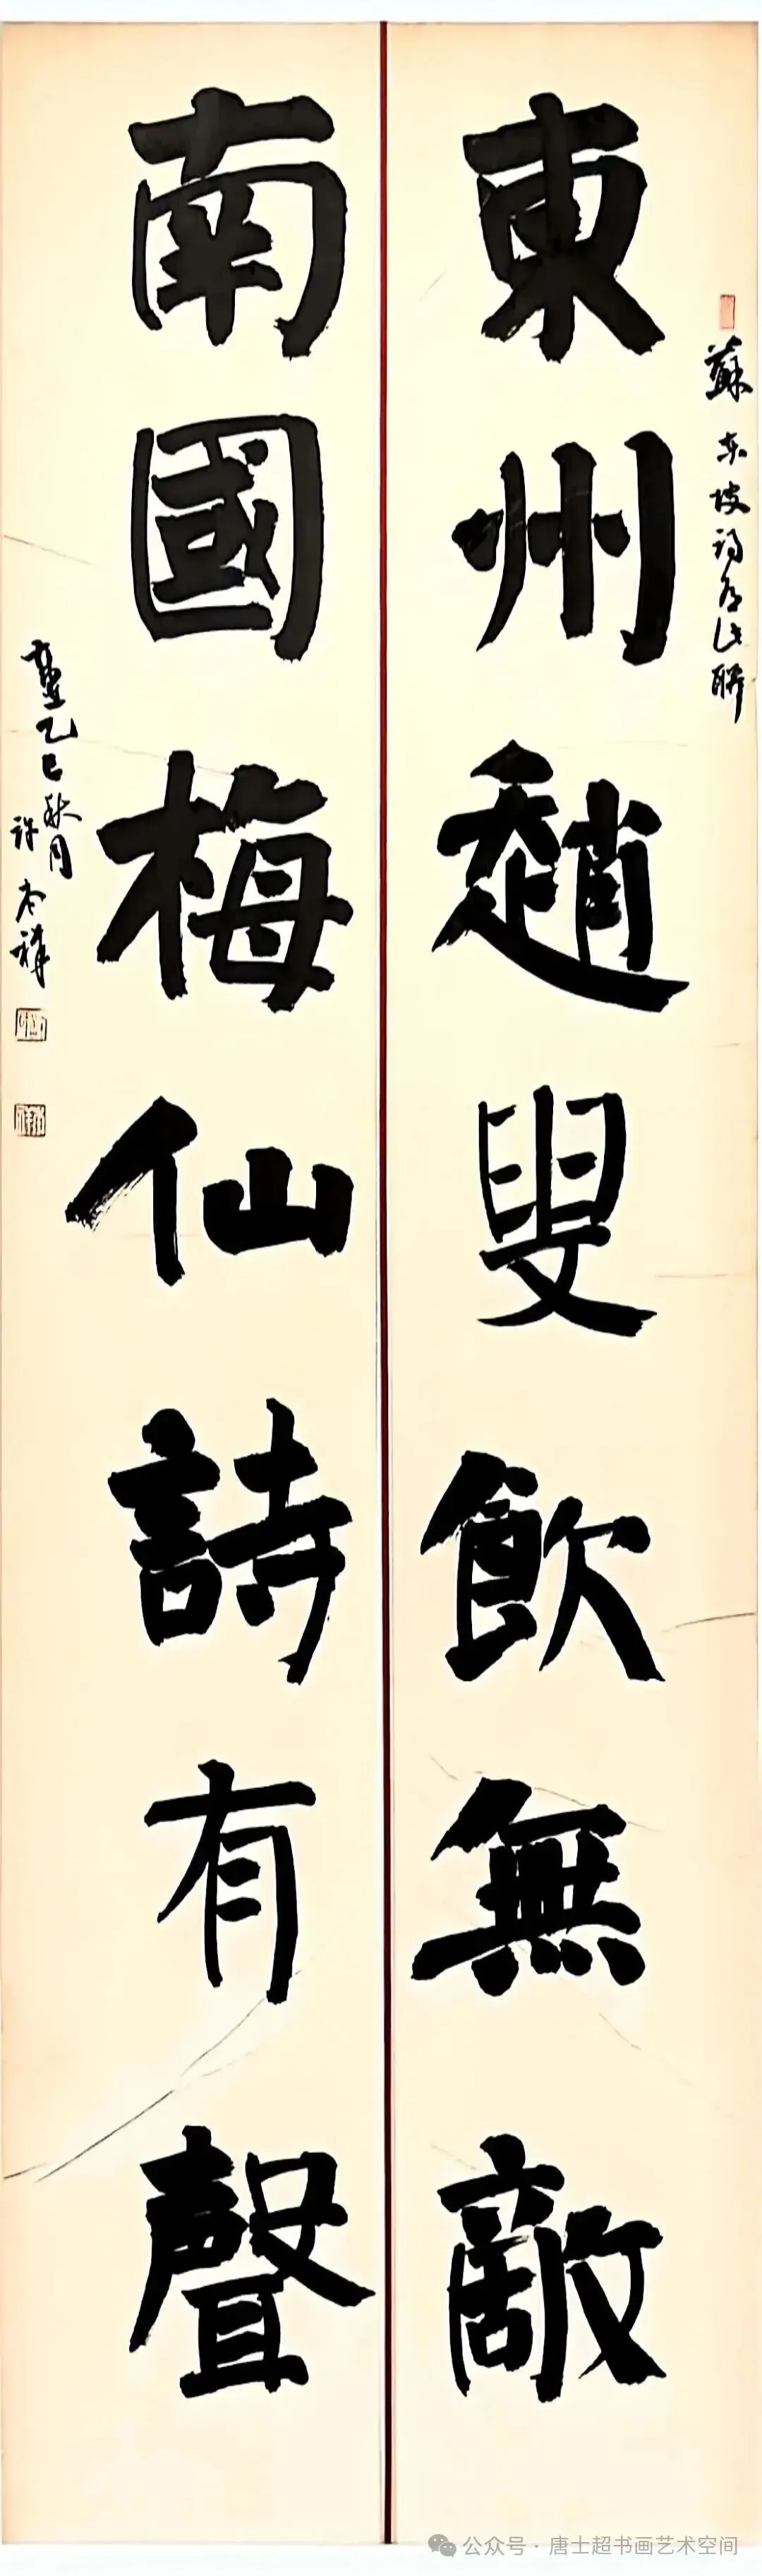 蘇东坡詩有此联
東州趙叟飲無敵
南國梅仙詩有聲
乙巳秋月
公众号·唐士超书画艺术空间